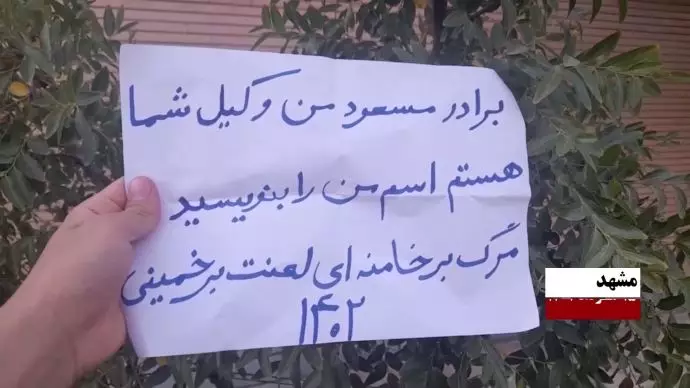 برادر مسعود من وکیل شما
هستم اسم من را بنویسید
مرگ بر خامنه ای لعنت بر خمینی
۱۴۰۲
مشهد